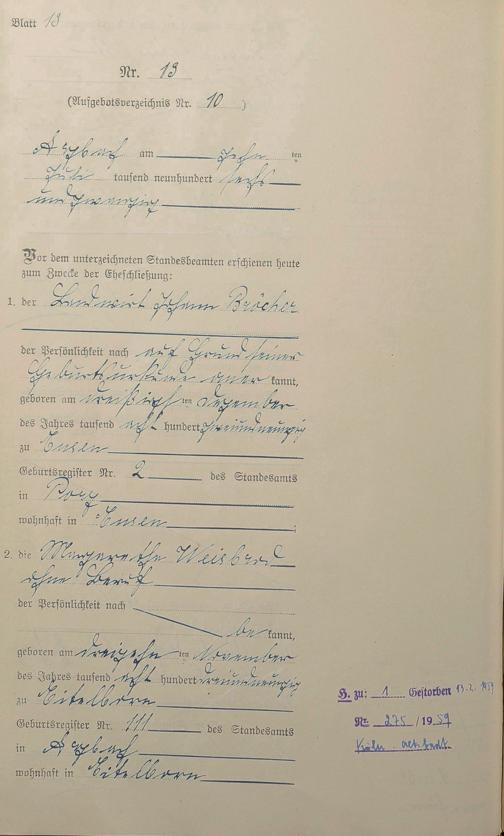 Blatt 13
Nr. 13
(Aufgebotsverzeichnis Nr. 10)
Arzbach am zehn ten
Juli tausend neunhundert sechs
undzwanzig
Vor dem unterzeichneten Standesbeamten erschienen heute
zum Zwecke der Eheschließung:
1. der Landwirt Johann Bröcher
der Persönlichkeit nach auf Grund seiner
Geburtsurkunde aner kannt,
geboren am dreißigsten Dezember
des Jahres tausend acht hundert zweiundneunzig
zu Ensen
Geburtsregister Nr. 2 des Standesamts
in Porz
wohnhaft in Ensen;
2. die Margarethe Weisbrod
ohne Beruf
der Persönlichkeit nach
be kannt,
geboren am dreizehn ten November
des Jahres tausend acht hundert dreiundneunzig
zu Eitelborn
Geburtsregister Nr. 111 des Standesamts
in Arzbach
wohnhaft in Eitelborn
H. zu: 1 Gestorben 13.2.1959
Nr. 275 / 1959
Köln